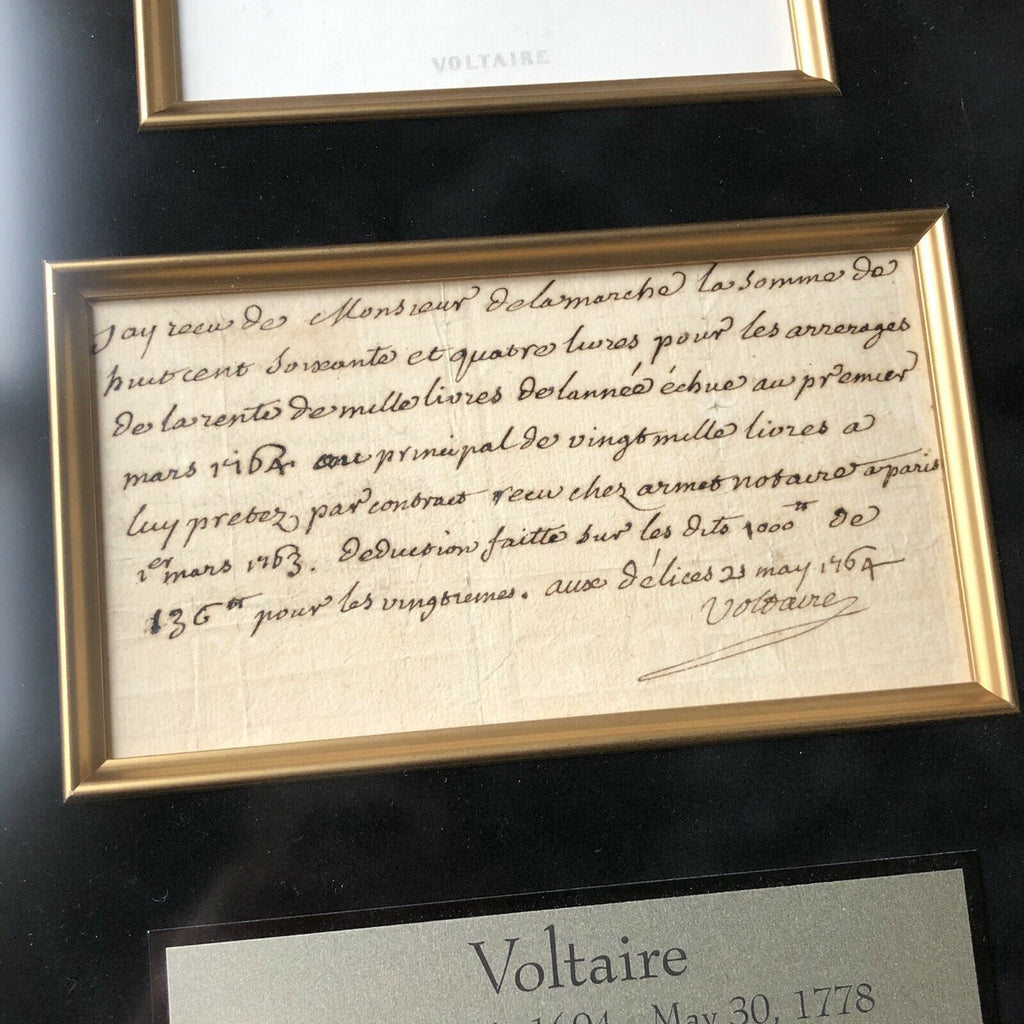 VOLTAIRE
Jay recu de Monsieur delamarche la somme de
huit cent soixante et quatre livres pour les arrerages
de la rente de mille livres de lannéé échue au premier
mars 1764 au principal de vingt mille livres a
luy pretez par contract recu chez armet notaire a paris
1er mars 1763. deduction faitte sur les dits 1000tt de
136tt pour les vingtiemes. aux délices 21 may 1764
Voltaire
Voltaire
1694 May 30, 1778